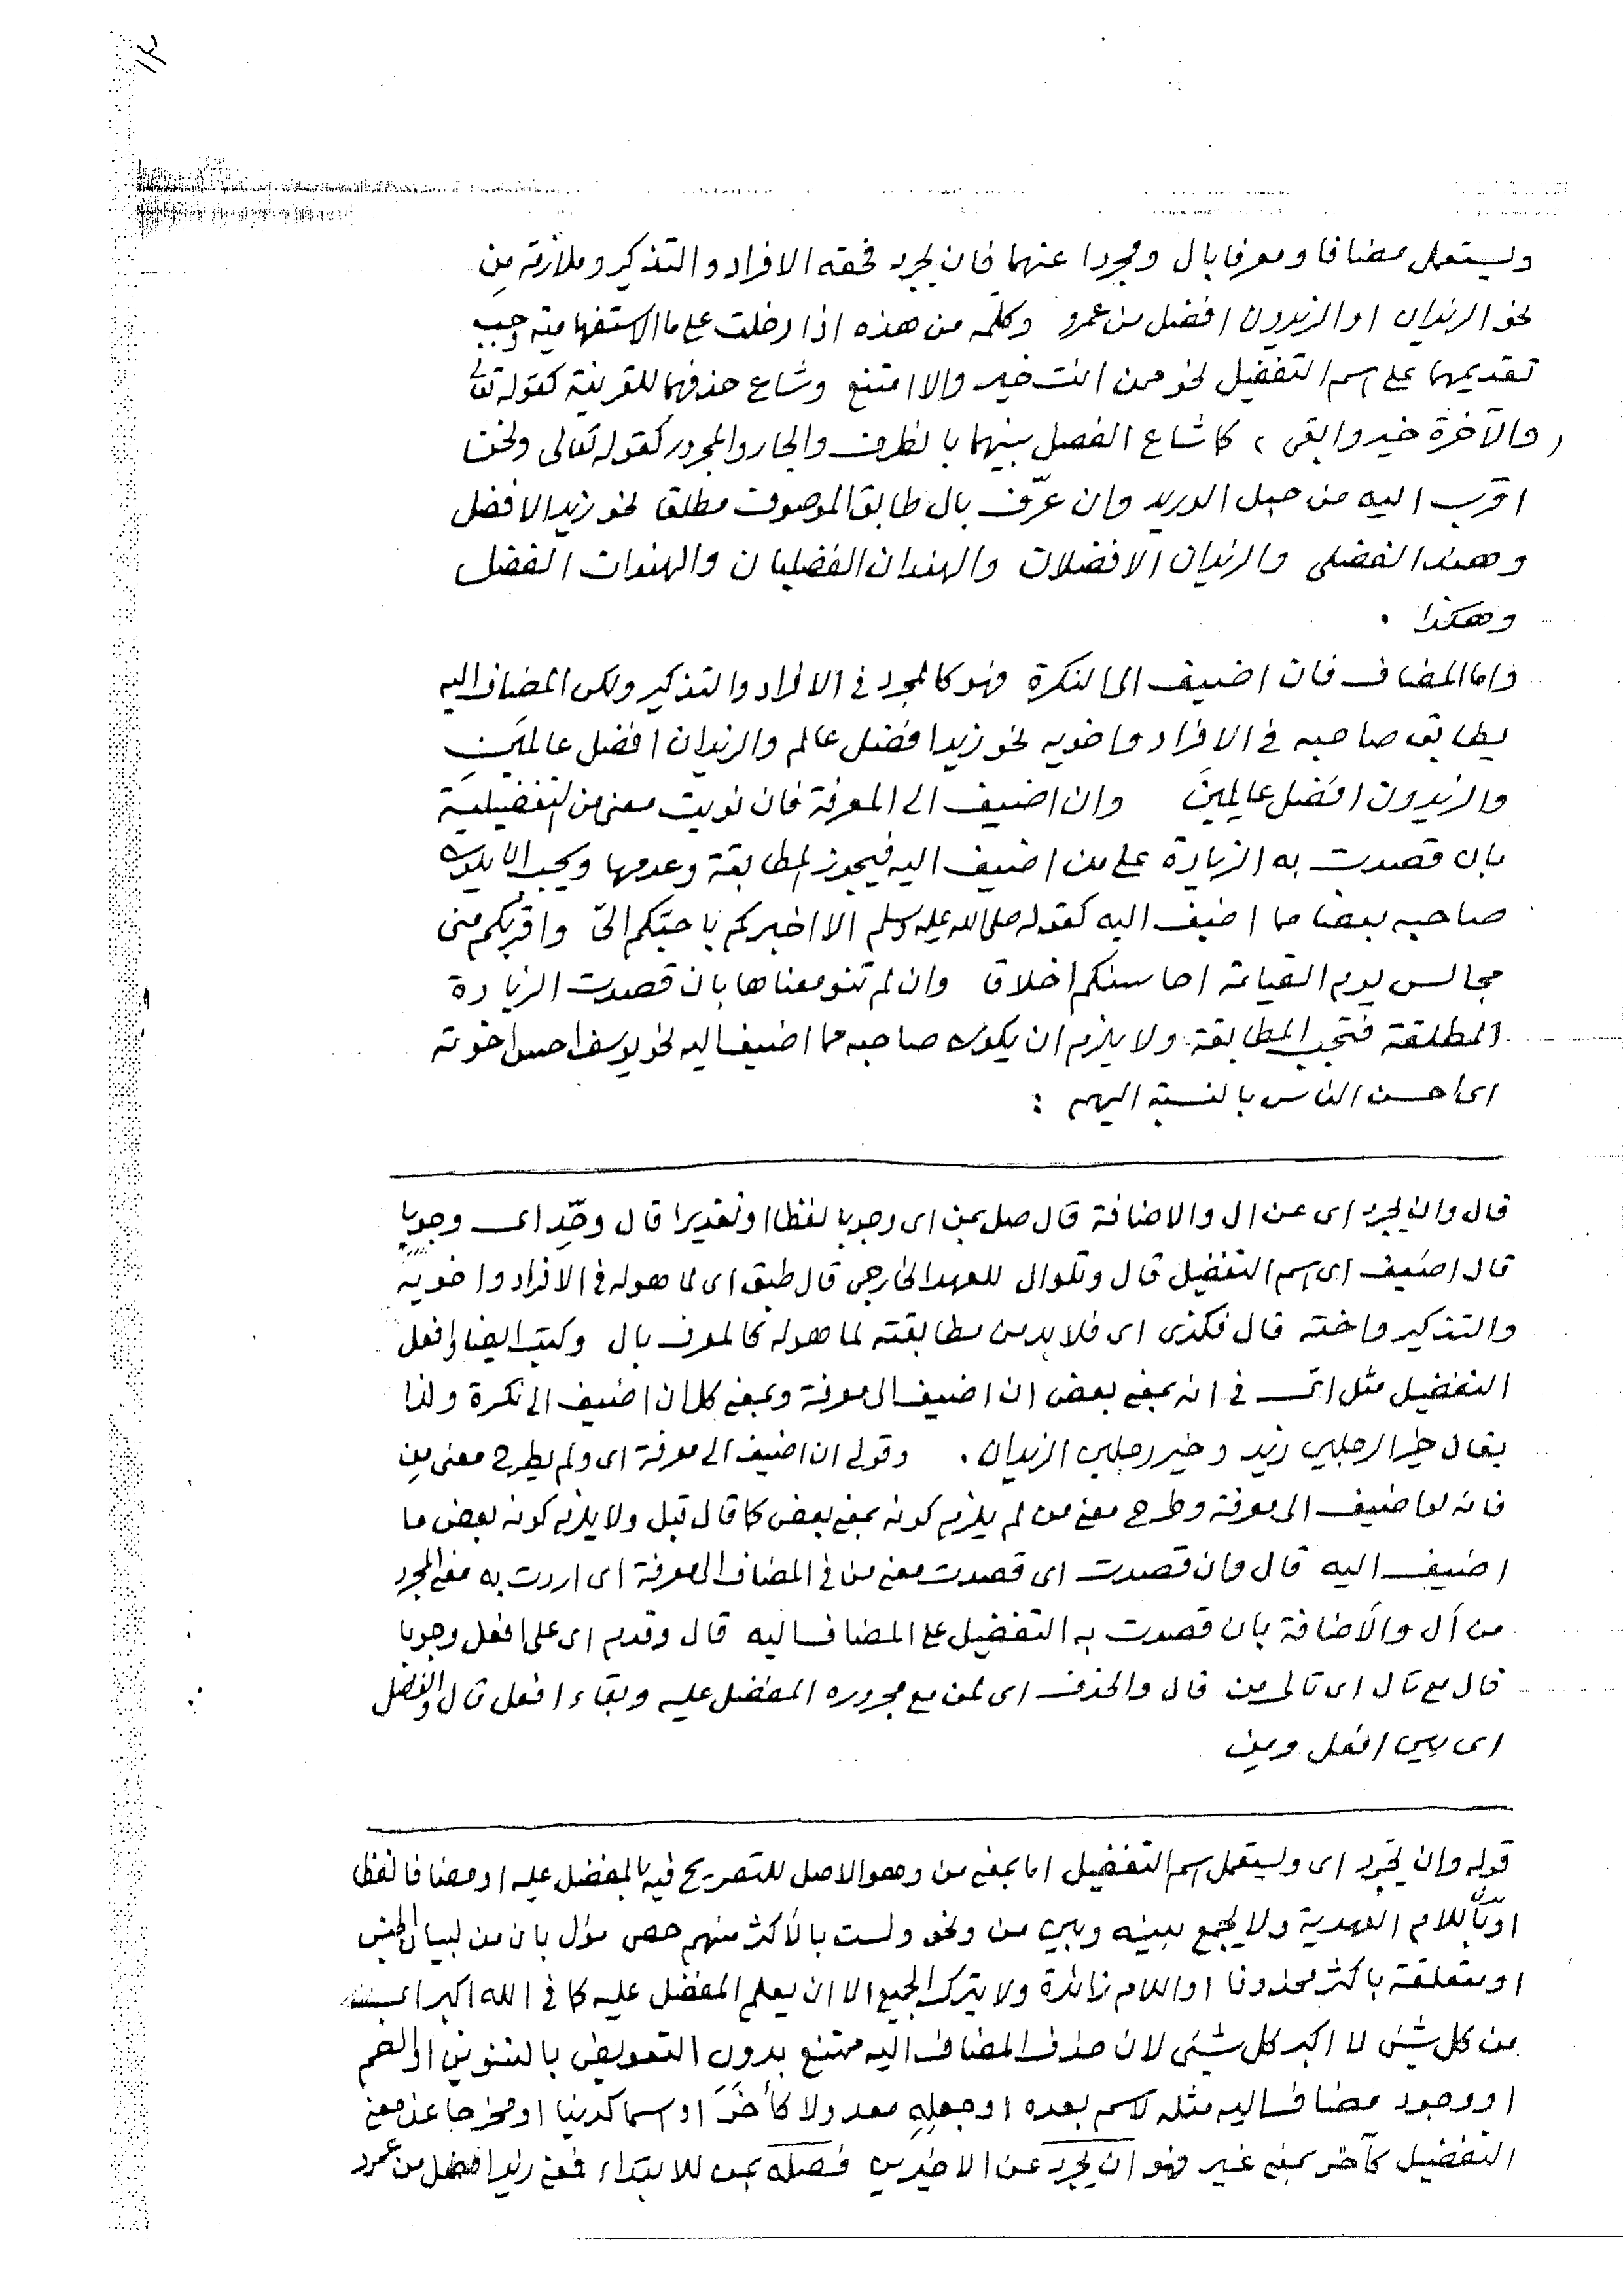 ١٣
ويستعمل مضافا ومعرفا بال ومجردا عنهما فان يجرد فحقه الافراد والتذكير وملازمة مِن
نحو الزيدان او الزيدون افضل من عمرو وكلمة من هذه اذا دخلت على ما الاستفهامية وجب
تقديمهما على اسم التفضيل نحو ممن انت خير والا امتنع وشاع حذفهما للقرينة كقوله تعالى
(والآخرة خير وابقى) كما شاع الفصل بينهما بالظرف والجار والمجرور كقوله تعالى ونحن
اقرب اليه من حبل الوريد وان عرّف بال طابق الموصوف مطلقا نحو زيد الافضل
وهند الفضلى والزيدان الافضلان والهندان الفضليان والهندات الفضل
وهكذا .
واما المضاف فان اضيف الى النكرة فهو كالمجرد فى الافراد والتذكير ولكن المضاف اليه
يطابق صاحبه فى الافراد واخويه نحو زيد افضل عالم والزيدان افضل عالمَينِ
والزيدون افضل عالِمِينَ وان اضيف الى المعرفة فان نويت معنى من التفضيلية
بان قصدت به الزيادة على من اضيف اليه فيجوز المطابقة وعدمها ويجب ان يكون
صاحبه بعضا مما اضيف اليه كقوله صلى الله عليه وسلم الا اخبركم باحبكم الىّ واقربكم منى
مجالس يوم القيامة احاسنكم اخلاقا وان لم تنو معناها بان قصدت الزيادة
المطلقة فتجب المطابقة ولا يلزم ان يكون صاحبه مما اضيف اليه نحو يوسف احسن اخوته
اى احسن الناس بالنسبة اليهم :
قال وان يجرد اى عن ال والاضافة قال صل بمن اى وجوبا لفظا او تقديرا قال وحِّد اى وجوبا
قال اضيف اى اسم التفضيل قال وتلو ال للعهد الخارجى قال طبق اى لما هو له فى الافراد واخويه
والتذكير واخته قال فكذى اى فلا بد من مطابقته لما هو له كالمعرف بال وكتب ايضا وافعل
التفضيل مثل اىّ فى انه بمعنى بعض ان اضيف الى معرفة وبمعنى كل ان اضيف الى نكرة ولذا
يقال خير الرجلين زيد وخير رجلين الزيدان . وقولى ان اضيف الى معرفة اى ولم يطرح معنى مِن
فانه لو اضيف الى معرفة وطرح معنى من لم يلزم كونه بمعنى بعض كما قال قبل ولا يلزم كونه بعض ما
اضيف اليه قال وان قصدت اى قصدت معنى من فى المضاف الى معرفة اى اردت به معنى المجرد
من أل والاضافة بان قصدت به التفضيل على المضاف اليه قال وقدم اى على افعل وجوبا
قال مع تال اى تالى من قال والحذف اى لمن مع مجروره المفضل عليه وبقاء افعل قال والفصل
اى بين افعل ومِن
قوله وان يجرد اى ويستعمل اسم التفضيل اما بمعنى من وهو الاصل للتصريح فيه بالمفضل عليه او مضافا لفظا
او باللام العهدية ولا يجمع بينه وبين من ونحو ولست بالأكثر منهم حصى مؤل بان من لبيان الجنس
او متعلقة باكثر محذوفا او اللام زائدة ولا يترك الجميع الا ان يعلم المفضل عليه كما فى الله اكبر اى
من كل شيئ لا اكبر كل شيئ لان حذف المضاف اليه ممتنع بدون التعويض بالتنوين او الضم
او وجود مضاف اليه مثله لاسم بعده او جعلِهِ معدولا كأُخَرَ او اسما كدنيا او مخرجا عن معنى
التفضيل كآخر بمعنى غير فهو ان يجرد عن الاخيرين فصله بمن للابتداء فمعنى زيد افضل من عمرو